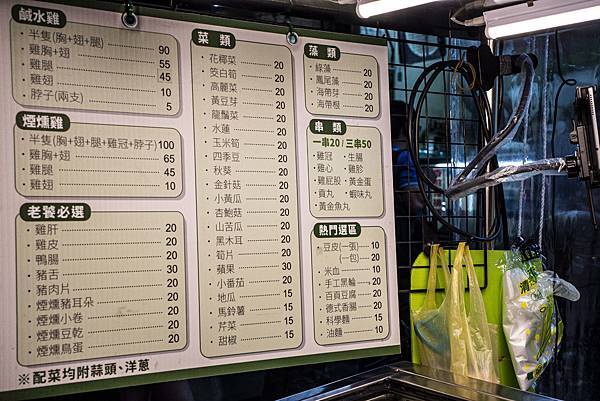 鹹水雞
半隻(胸+翅+腿)
雞胸+翅 90
雞腿 55
雞翅 45
脖子(兩支) 10
5
煙燻雞
半隻(胸+翅+腿+雞冠+脖子)100
雞胸+翅 65
雞腿 45
雞翅 10
老饕必選
雞肝 20
雞皮 20
鴨腸 20
豬舌 30
豬肉片 20
煙燻豬耳朵 20
煙燻小卷 20
煙燻豆乾 20
煙燻鳥蛋 20
※配菜均附蒜頭、洋蔥
菜類
花椰菜 20
筊白筍 20
高麗菜 20
黃豆芽 20
龍鬚菜 20
水蓮 20
玉米筍 20
四季豆 20
秋葵 20
金針菇 20
小黃瓜 20
杏鮑菇 20
山苦瓜 20
黑木耳 20
筍片 20
蘋果 30
小番茄 20
地瓜 15
馬鈴薯 15
芹菜 15
甜椒 15
藻類
綠藻 20
鳳尾藻 20
海帶芽 20
海帶根 20
串類
一串20/三串50
雞冠 生腸
雞心 雞胗
雞屁股 黃金蛋
貢丸 蝦味丸
黃金魚丸
熱門選區
豆皮(一張) 10
(一包) 20
米血 10
手工黑輪 20
百頁豆腐 20
德式香腸 20
科學麵 15
油麵 10